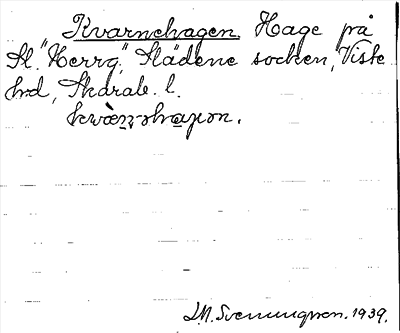 Kvarnehagen, Hage på
St. "Herrg." Slädene socken, Viste
hrd, Skarab. l.
L.M. Svenungsson. 1939.